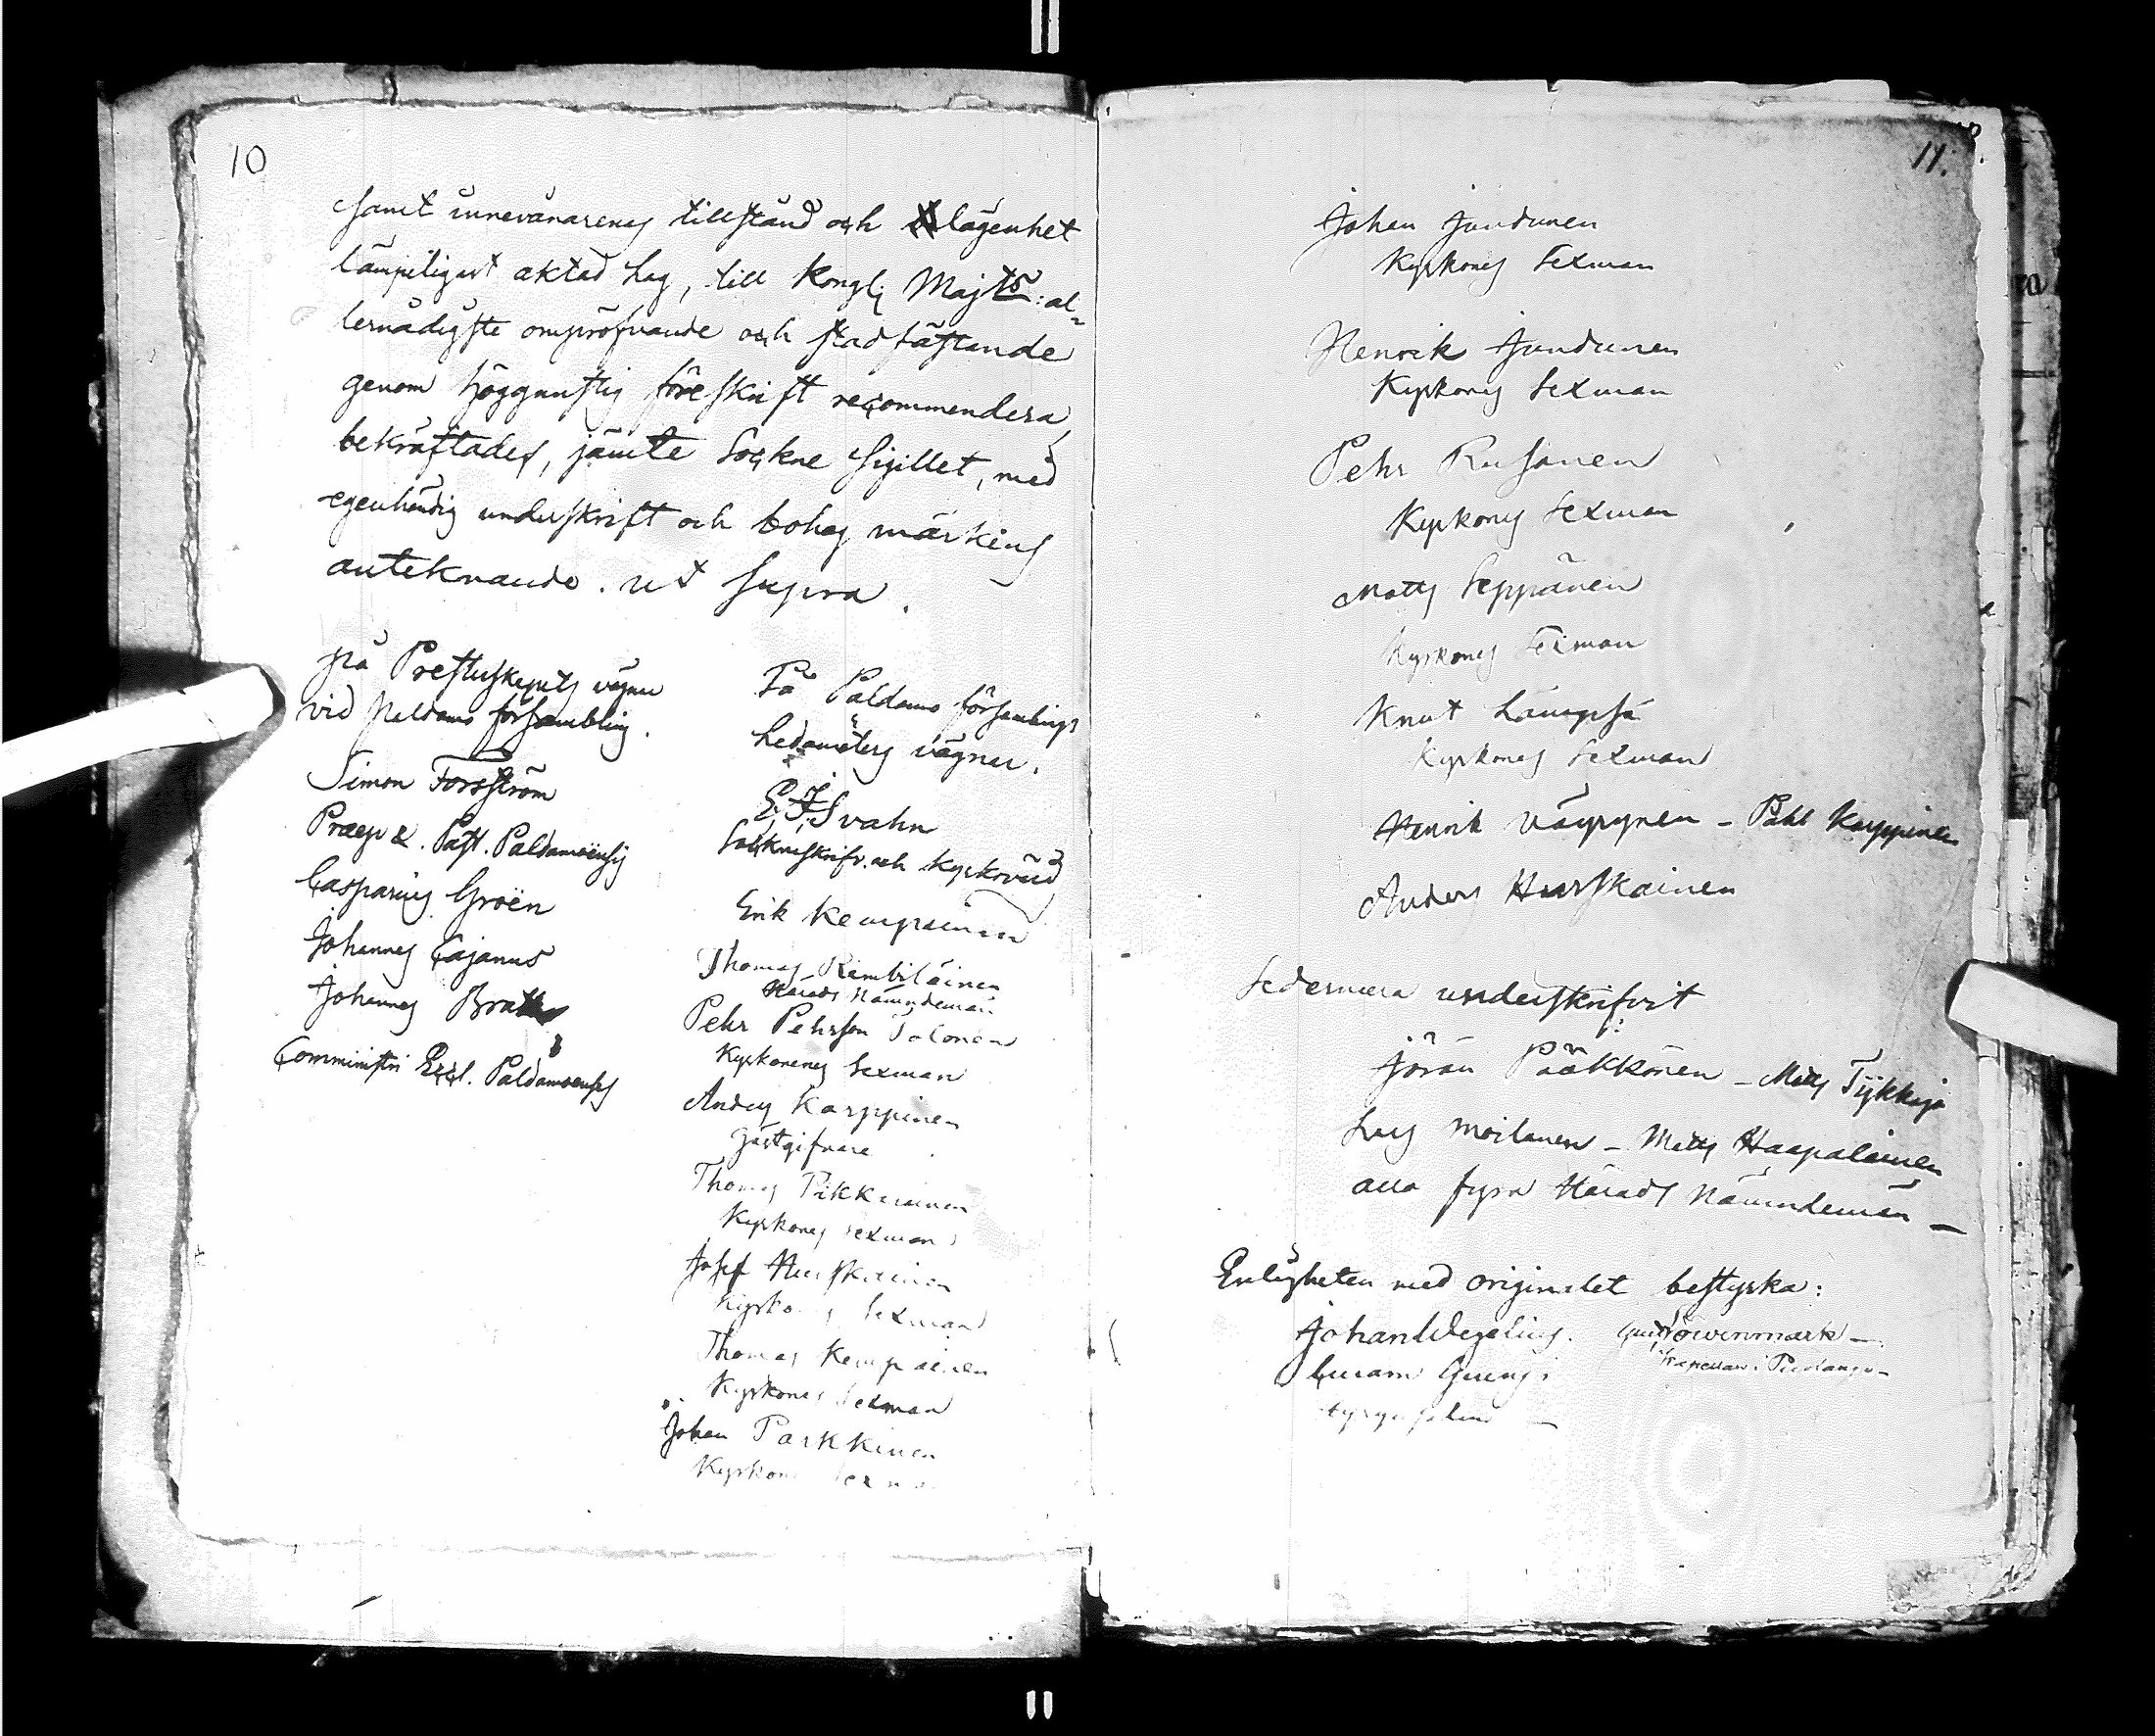 10
samt innevånarenes tillstånd och lägenhet
lämpeligast aktad Lag, till Kongl: Majts: al-
lernådigste ompröfvande och stadfästande
genom höggunstig föreskrift recommendera,
bekräftades, jämte Sockne Sigillet, med
egenhändig underskrift och bohas märkens
anteknande. ut supra.
på Presterskapets vägnar
vid Paldamo försambling.
Simon Forsström
Præp. & Past. Paldamoënsis
Casparus Groën
Johannes Cajanus
Johannes Brat
Comministri Eccl. Paldamoenses
På Paldamo församlings
Ledamöters vägnar.
E. J. Svahn
Socknskrifv. och Kyrkovärd
Erik Kempainen
Thomas Kembiläinen
Härads Nämndeman
Pehr Pehrson Tolonen
Kyrkonenes Sexman
Anders Karppinen
Gästgifvare
Thomas Pikkarainen
Kyrkones sexman
Josef Hurskainen
Kyrkones Sexman
Thomas Kempainen
Kyrkones Sexman
Johan Parkkinen
Kyrkones Sexman
11.
Johan Jundunen
Kyrkones Sexman
Henrik Jundunen
Kyrkones Sexman
Pehr Rusanen
Kyrkones Sexman
Matts Seppänen
Kyrkones Sexman
Knut Lämpsä
Kyrkones Sexman
Henrik Väyrynen – Påhl Karppinen
Anders Hurskainen
Sedermera underskrifvit
Jöran Pääkkönen – Matts Tykkyjä
Lars Moilanen – Matts Haapalainen
alla fyra Härads Nämndemän –
Enligheten med originalet bestyrka:
Johan Wegelius. Löwenmark –